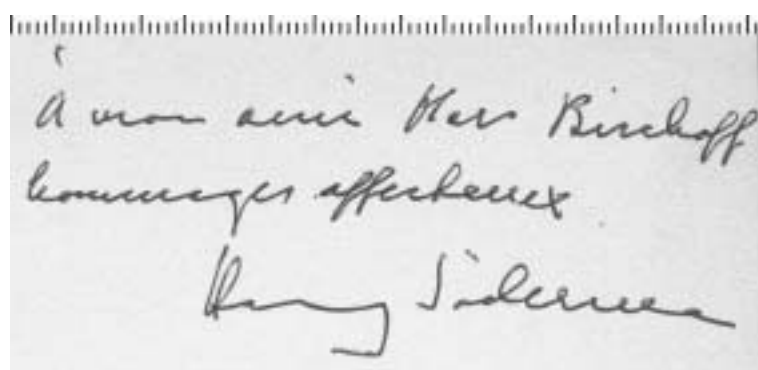 À mon ami Marc Bischoff
hommages affectueux
Harry Söderman